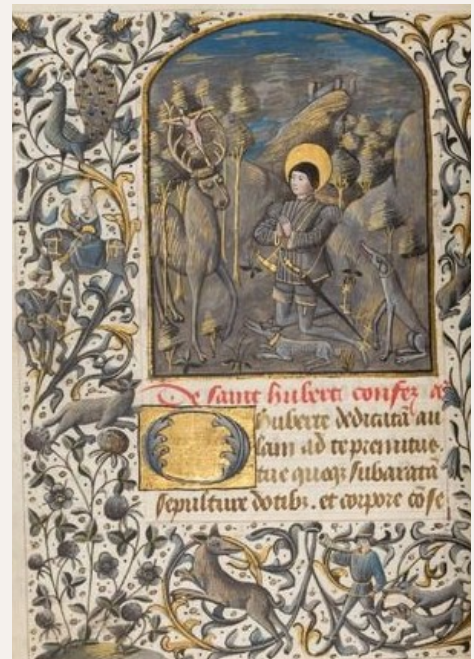 De saint hubert confez
O huberte dedicatā au
lam ad te premitus
tue quoqz subarata
sepulture dotibz. et corpore cose